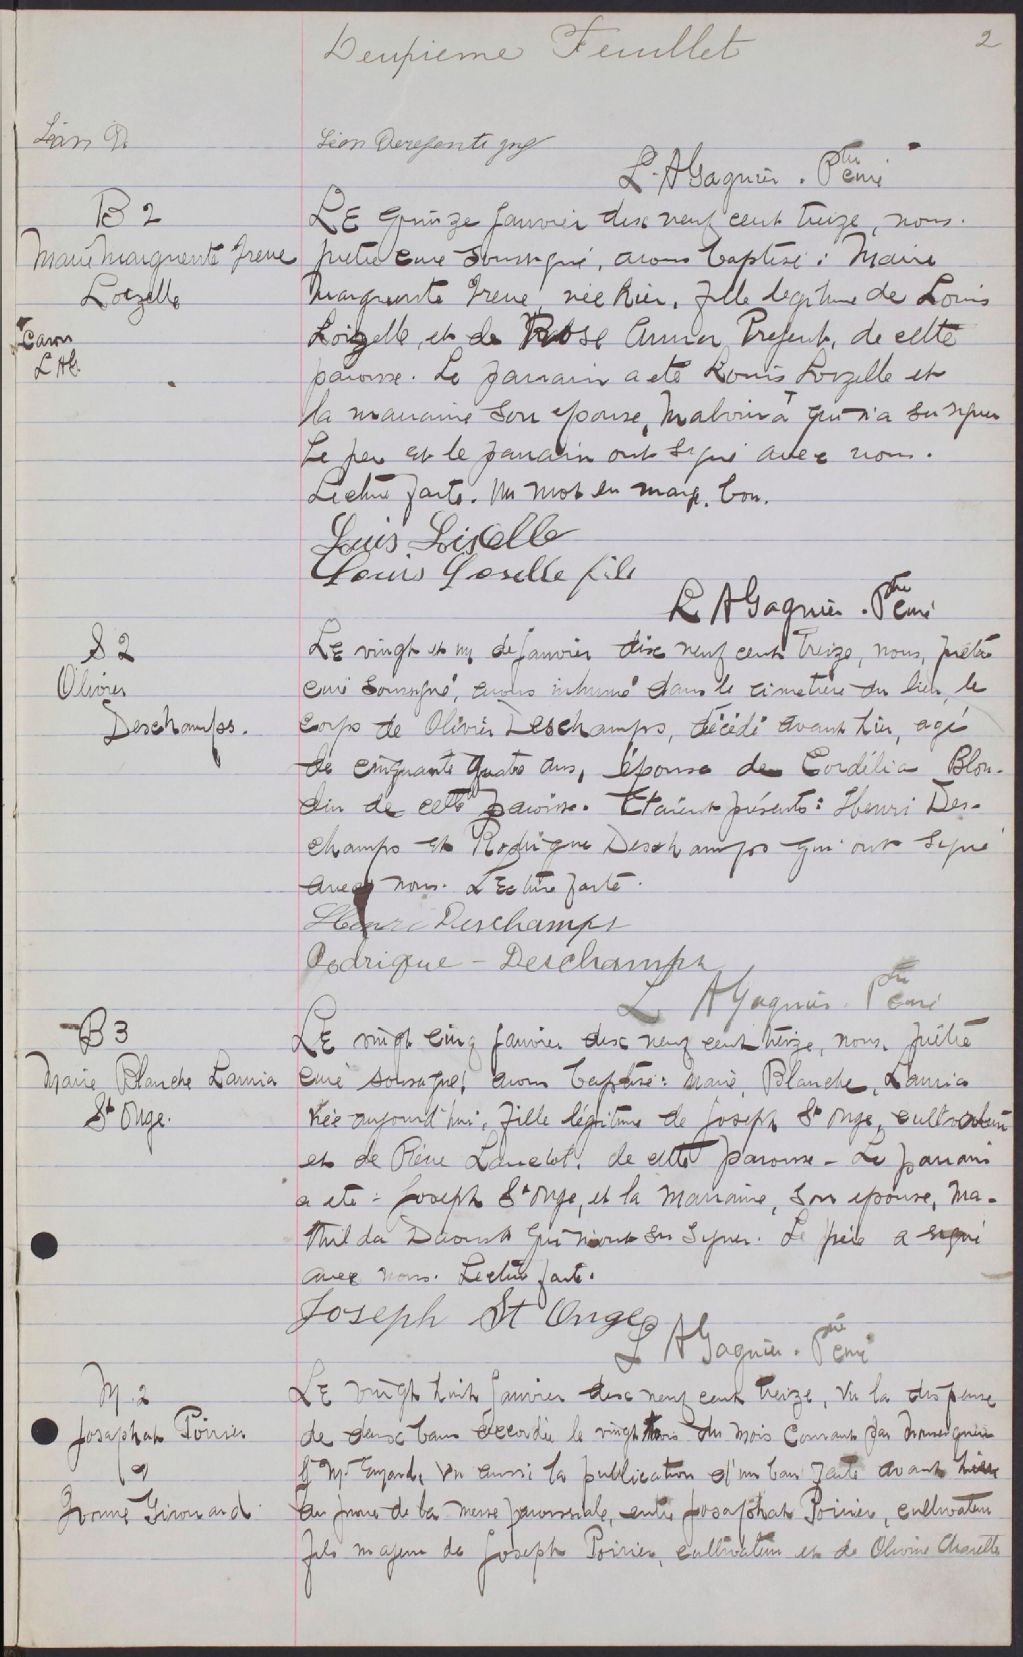 Deuxieme Feuillet
2
Léon D
Léon Derepentigny
L. A Gagnier. Ptre curé
B 2
Marie Marguerite Irene
Loizelle
+Caron
L AG.
LE quinze janvier dix neuf cent treize, nous.
pretre cure soussigné, avons baptisé: Marie
Marguerite Irene, née hier, fille legitime de Louis
Loizelle, et de Rose Anna Present, de cette
paroisse. Le parrain a ete Louis Loizelle et
la marraine son epouse, Malvina + qui n'a su signer
Le pere et le parrain ont signé avec nous.
Lecture faite. Un mot en marge. bon.
Louis Loiselle
Louis Loselle fils
L A Gagnier. Ptre curé
S 2
Olivier
Deschamps.
LE vingt et un de janvier dix neuf cent treize, nous, prêtre
curé soussigné, avons inhumé dans le cimetière du lieu, le
corps de Olivier Deschamps, décédé avant hier, agé
de cinquante quatre ans, épouse de Cordélia Blon-
din de cette paroisse. Etaient présents: Henri Des-
champs et Rodrigue Deschamps qui ont signé
avec nous. LEcture faite.
Henri Deschamps
Rodrigue - Deschamps
L A Gagnier. Ptre curé
B 3
Marie Blanche Lauria
St Onge.
LE vingt cinq janvier dix neuf cent treize, nous prêtre
curé soussigné, avons baptisé: Marie, Blanche, Lauria
née aujourd'hui, fille légitime de Joseph St Onge, cultivateur
et de Lanctot, de cette paroisse - Le parrain
a ete: Joseph St Onge, et la marraine, son epouse, Ma-
thilda Daoust qui n'ont su signer. Le père a signé
avec nous. Lecture faite.
Joseph St Onge
L A Gagnier. Ptre curé
M. 2
Josaphat Poirier
&
Yvonne Girouard.
LE vingt huit janvier dix neuf cent treize, Vu la dispense
de deux bans accordée le vingt trois du mois courant par Monseigneur
Vu aussi la publication d'un ban faite avant hier
au prone de la messe paroissiale, entre Josaphat Poirier, cultivateur
fils majeur de Joseph Poirier, cultivateur et de Olivine Charette